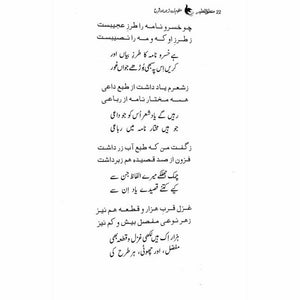 22
چو خسرو نامه را طرز عجیبست
ز طرز او که و مه را نصیبست
ہے خسرو نامہ کا طرز بیاں اور
کریں اس پہ بھی بوڑھے جواں غور
ز شعرم یاد داشت از طبع داعی
همه مختار نامه از رباعی
رہیں گے یاد شعر اُس کو جو داعی
جو ہیں مختار نامہ میں رباعی
ز گفت من که طبع آب زر داشت
فزون از صد قصیده هم زبرداشت
چمک جھلکے میرے الفاظ جن سے
کہے کتنے قصیدے یاد اِن سے
غزل قرب هزار و قطعه هم نیز
ز هر نوعی مفصل بیش و کم نیز
ہزار اک ہیں لکھی غزل و قطعہ بھی
مفصل، اور چھوٹی، ہر طرح کی